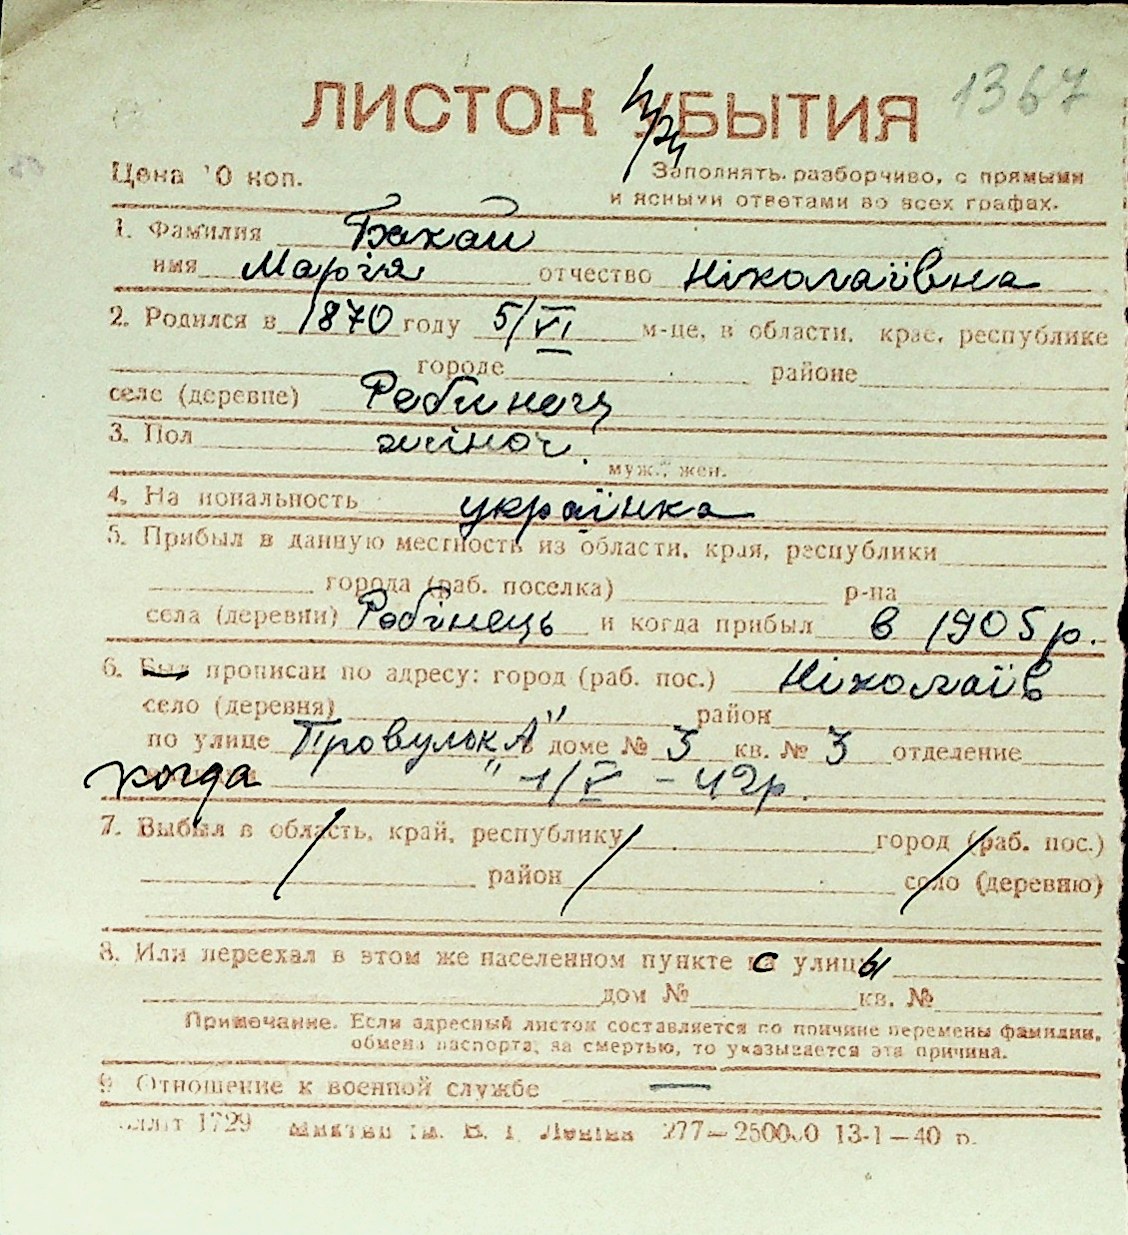 1367
ЛИСТОК ПРИБЫТИЯ
Цена 10 коп.
Заполнять разборчиво, с прямыми
и ясными ответами во всех графах.
1. Фамилия Бакай
имя Марія отчество Ніколаївна
2. Родился в 1870 году 5/VI м-це, в области, крае, республике
городе районе
селе (деревне)
3. Пол жіноч.
муж., жен.
4. Национальность українка
5. Прибыл в данную местность из области, края, республики
города (раб. поселка) р-на
села (деревни) Робінець и когда прибыл в 1905 р.
6. Был прописан по адресу: город (раб. пос.) Ніколаїв
село (деревня) район
по улице Провульк "А" в доме № 3 кв. № 3 отделение
когда 1/V - 42 р.
7. Выбыл в область, край, республику город (раб. пос.)
район село (деревню)
8. Или переехал в этом же населенном пункте с улицы
дом № кв. №
Примечание. Если адресный листок составляется по причине перемены фамилии,
обмена паспорта, за смертью, то указывается эта причина.
9. Отношение к военной службе —
1729 ім. В. І. Леніна 277—250000 13-1—40 р.